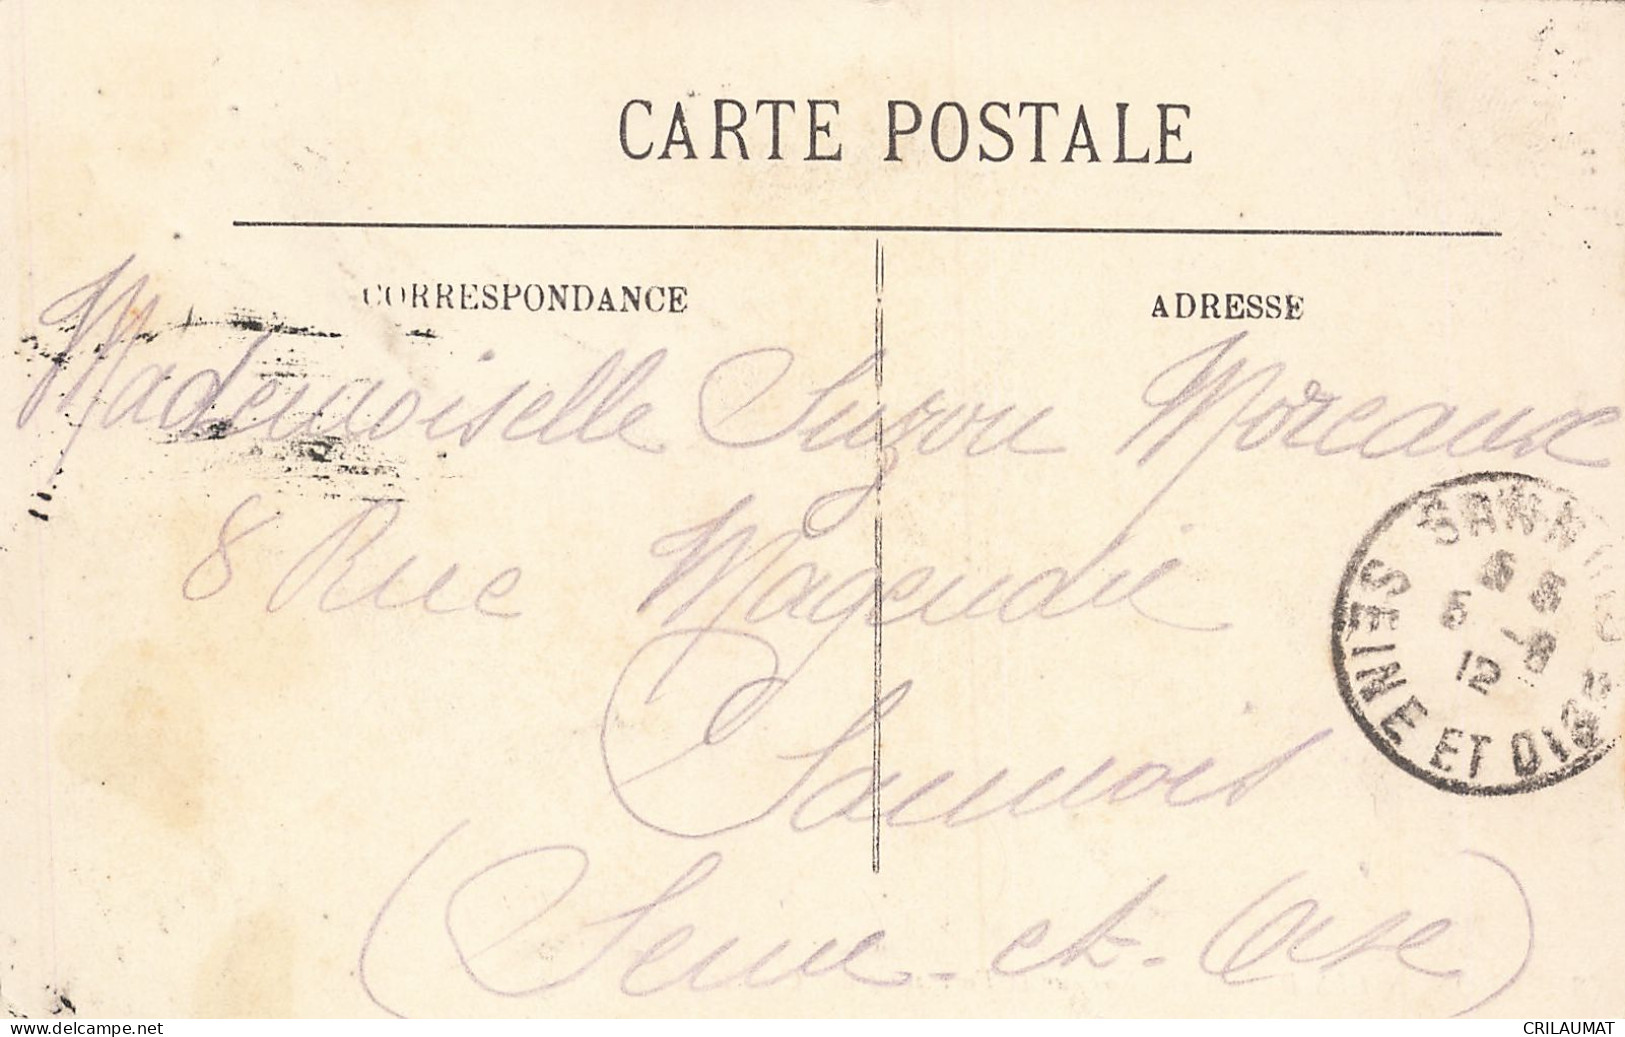 CARTE POSTALE
CORRESPONDANCE
ADRESSE
Mademoiselle Suzon Moreaux
8 Rue Magendie
Sannois
(Seine-et-Oise)
SANNOIS
5 -8
12
SEINE ET OISE
www.delcampe.net
CRILAUMAT